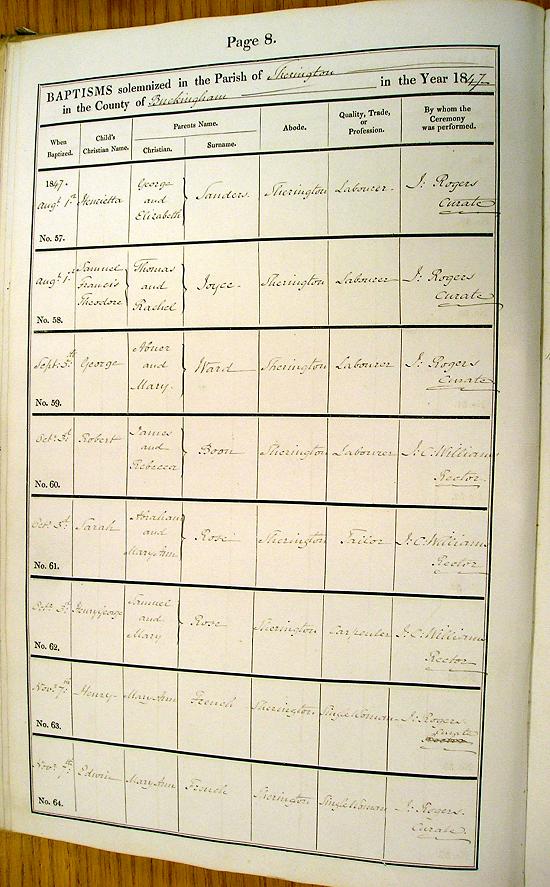 Page 8.
BAPTISMS solemnized in the Parish of Sherington
in the County of Buckingham in the Year 1847
When Baptized. Child's Christian Name. Parents Name. Abode. Quality, Trade, or Profession. By whom the Ceremony was performed.
Christian. Surname.
1847.
Augt 1st Henrietta George and Elizabeth Sanders. Sherington Labourer. J: Rogers Curate
No. 57.
Augt 1st Samuel Francis Theodore Thomas and Rachel Joyce. Sherington Labourer J: Rogers Curate
No. 58.
Sept: 5th George Abner and Mary. Ward Sherington Labourer J: Rogers Curate
No. 59.
Octr 3d Robert James and Rebecca Boon Sherington Labourer J. C. Williams Rector.
No. 60.
Octr Sarah Abraham and Mary Ann Rose Sherington Tailor J. C. Williams Rector
No. 61.
Octr 3d Henry George Samuel and Mary Rose Sherington Carpenter J. C. Williams Rector
No. 62.
Novr 7th Henry Mary Ann French Sherington Single Woman J: Rogers. Curate
No. 63.
Novr 7th Edwin Mary Ann French Sherington Single Woman J: Rogers. Curate
No. 64.